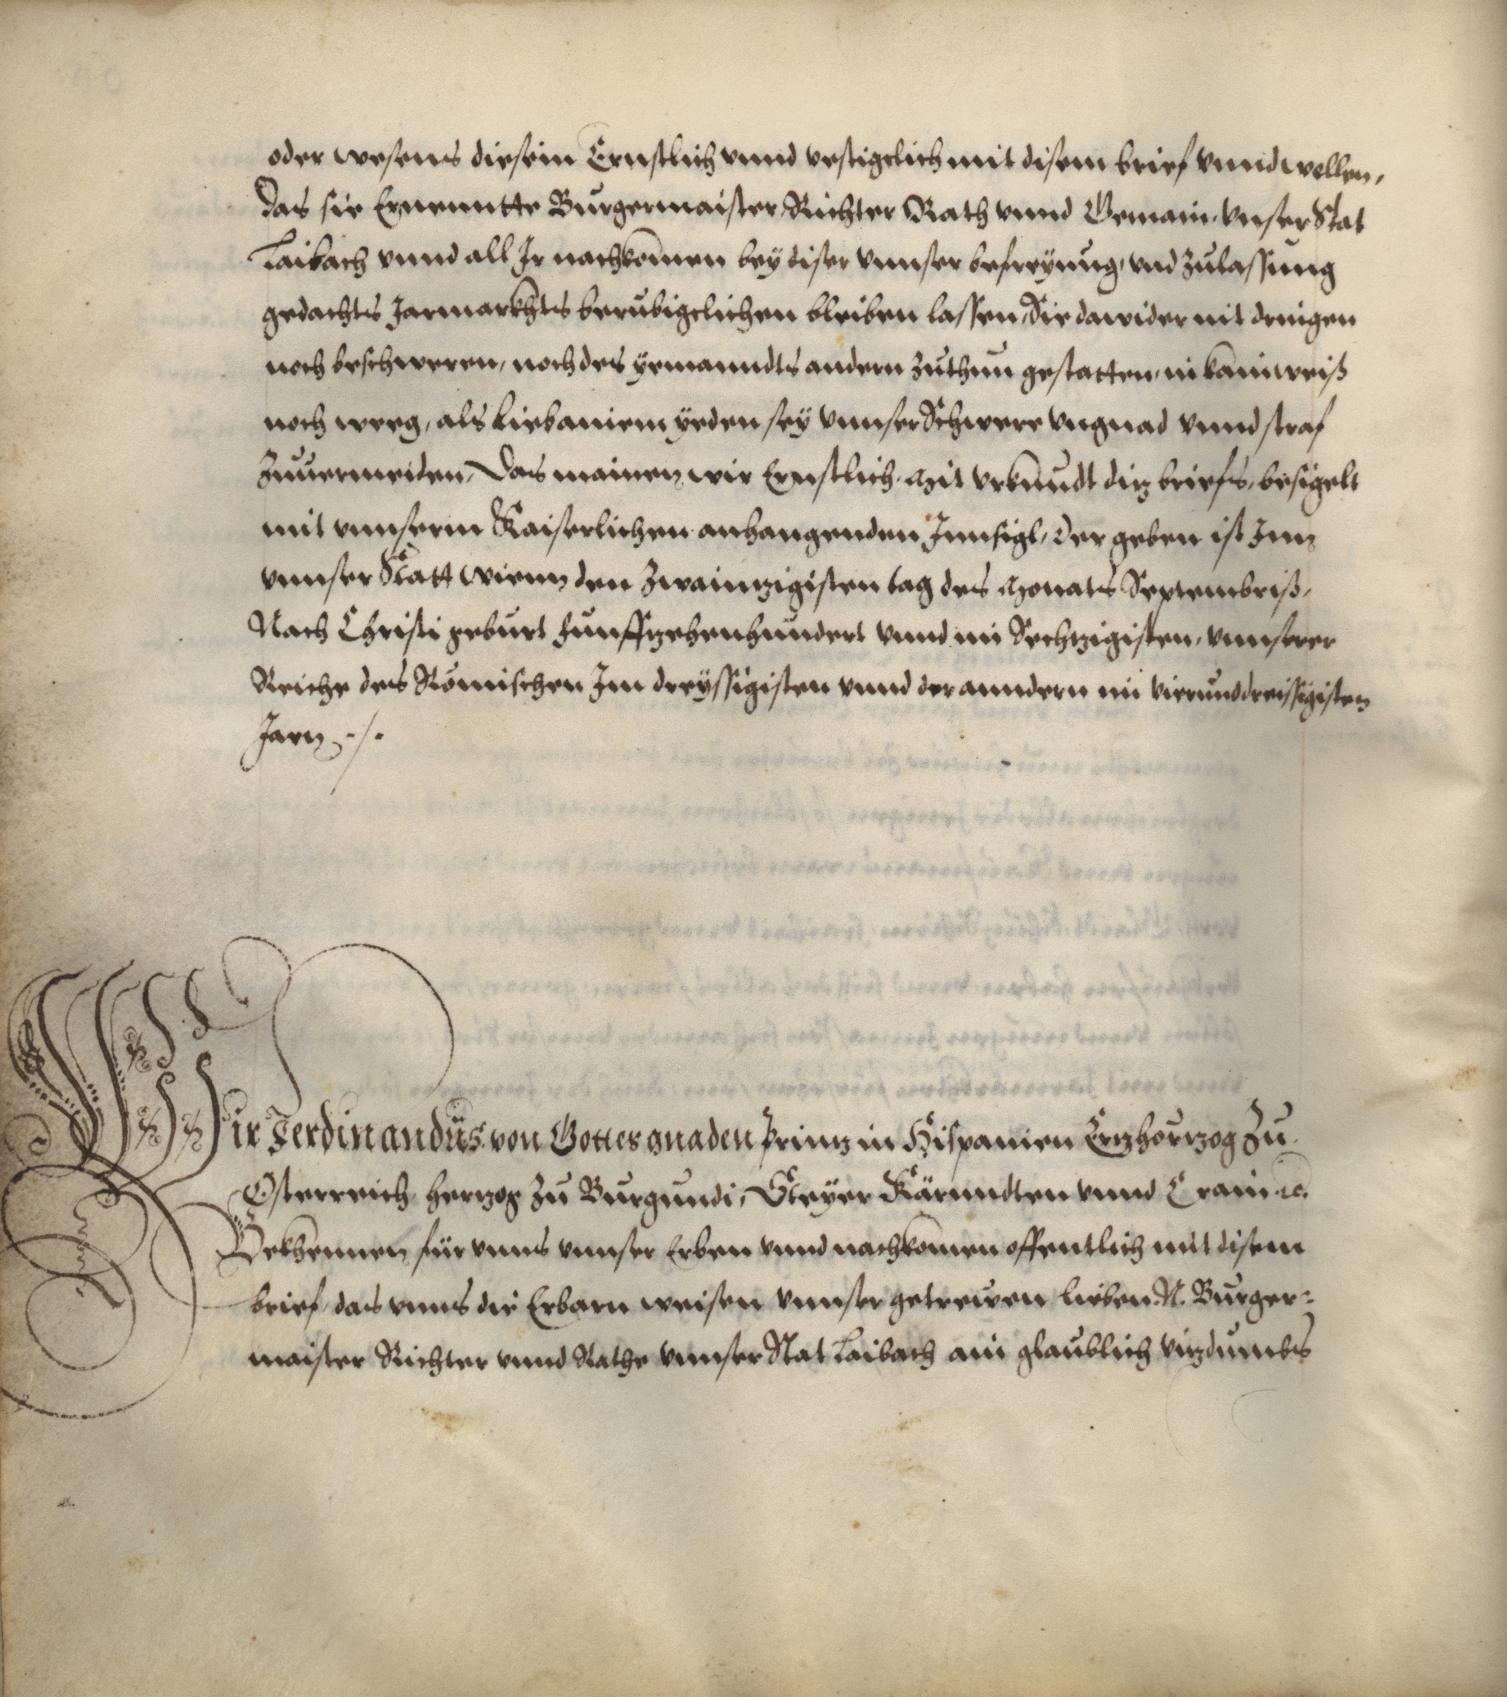 oder wesens die sein Ernstlich vnnd vestigclich mit disem brief vnnd wellen,
das sie Ernenntte Burgermaister, Richter Rath vnnd Gemain, vnser Stat
Laibach vnnd all Ir nachkomen bey diser vnnser befreyung, vnd zulassung
gedachts Jarmarkhts berubigclichen bleiben lassen, Sie dawider nit dringen
noch beschweren, noch des yemanndts andern zuthun gestatten, in kain weiß
noch weeg, als lieb ainem yeden sey vnnser Schwere vngnad vnnd straf
zuuermeiden, Das mainen wir Ernstlich, Mit vrkundt diz briefs, besigelt
mit vnnserm Kaiserlichen anhangenden Innsigl, Der geben ist Inn
vnnser Statt Wienn den Zwainzigisten tag des Monats Septembriß,
Nach Christi geburt Funffzehenhundert vnnd im Sechzigisten, vnnserer
Reiche des Römischen Im dreyssigisten vnnd der anndern im vierunddreissigisten
Jarn ./.
Wir Ferdinandus von Gottes gnaden Prinz in Hispanien Erzherzog zu
Osterreich Herzog zu Burgundi, Steyer Kärnndten vnnd Crain ec.
Bekhennen für vnns vnnser Erben vnnd nachkomen offentlich mit disem
brief, das vnns die Erbarn weisen vnnser getrewen lieben N. Burger=
maister Richter vnnd Rathe vnnser Stat Laibach ain glaublich vizdumbs